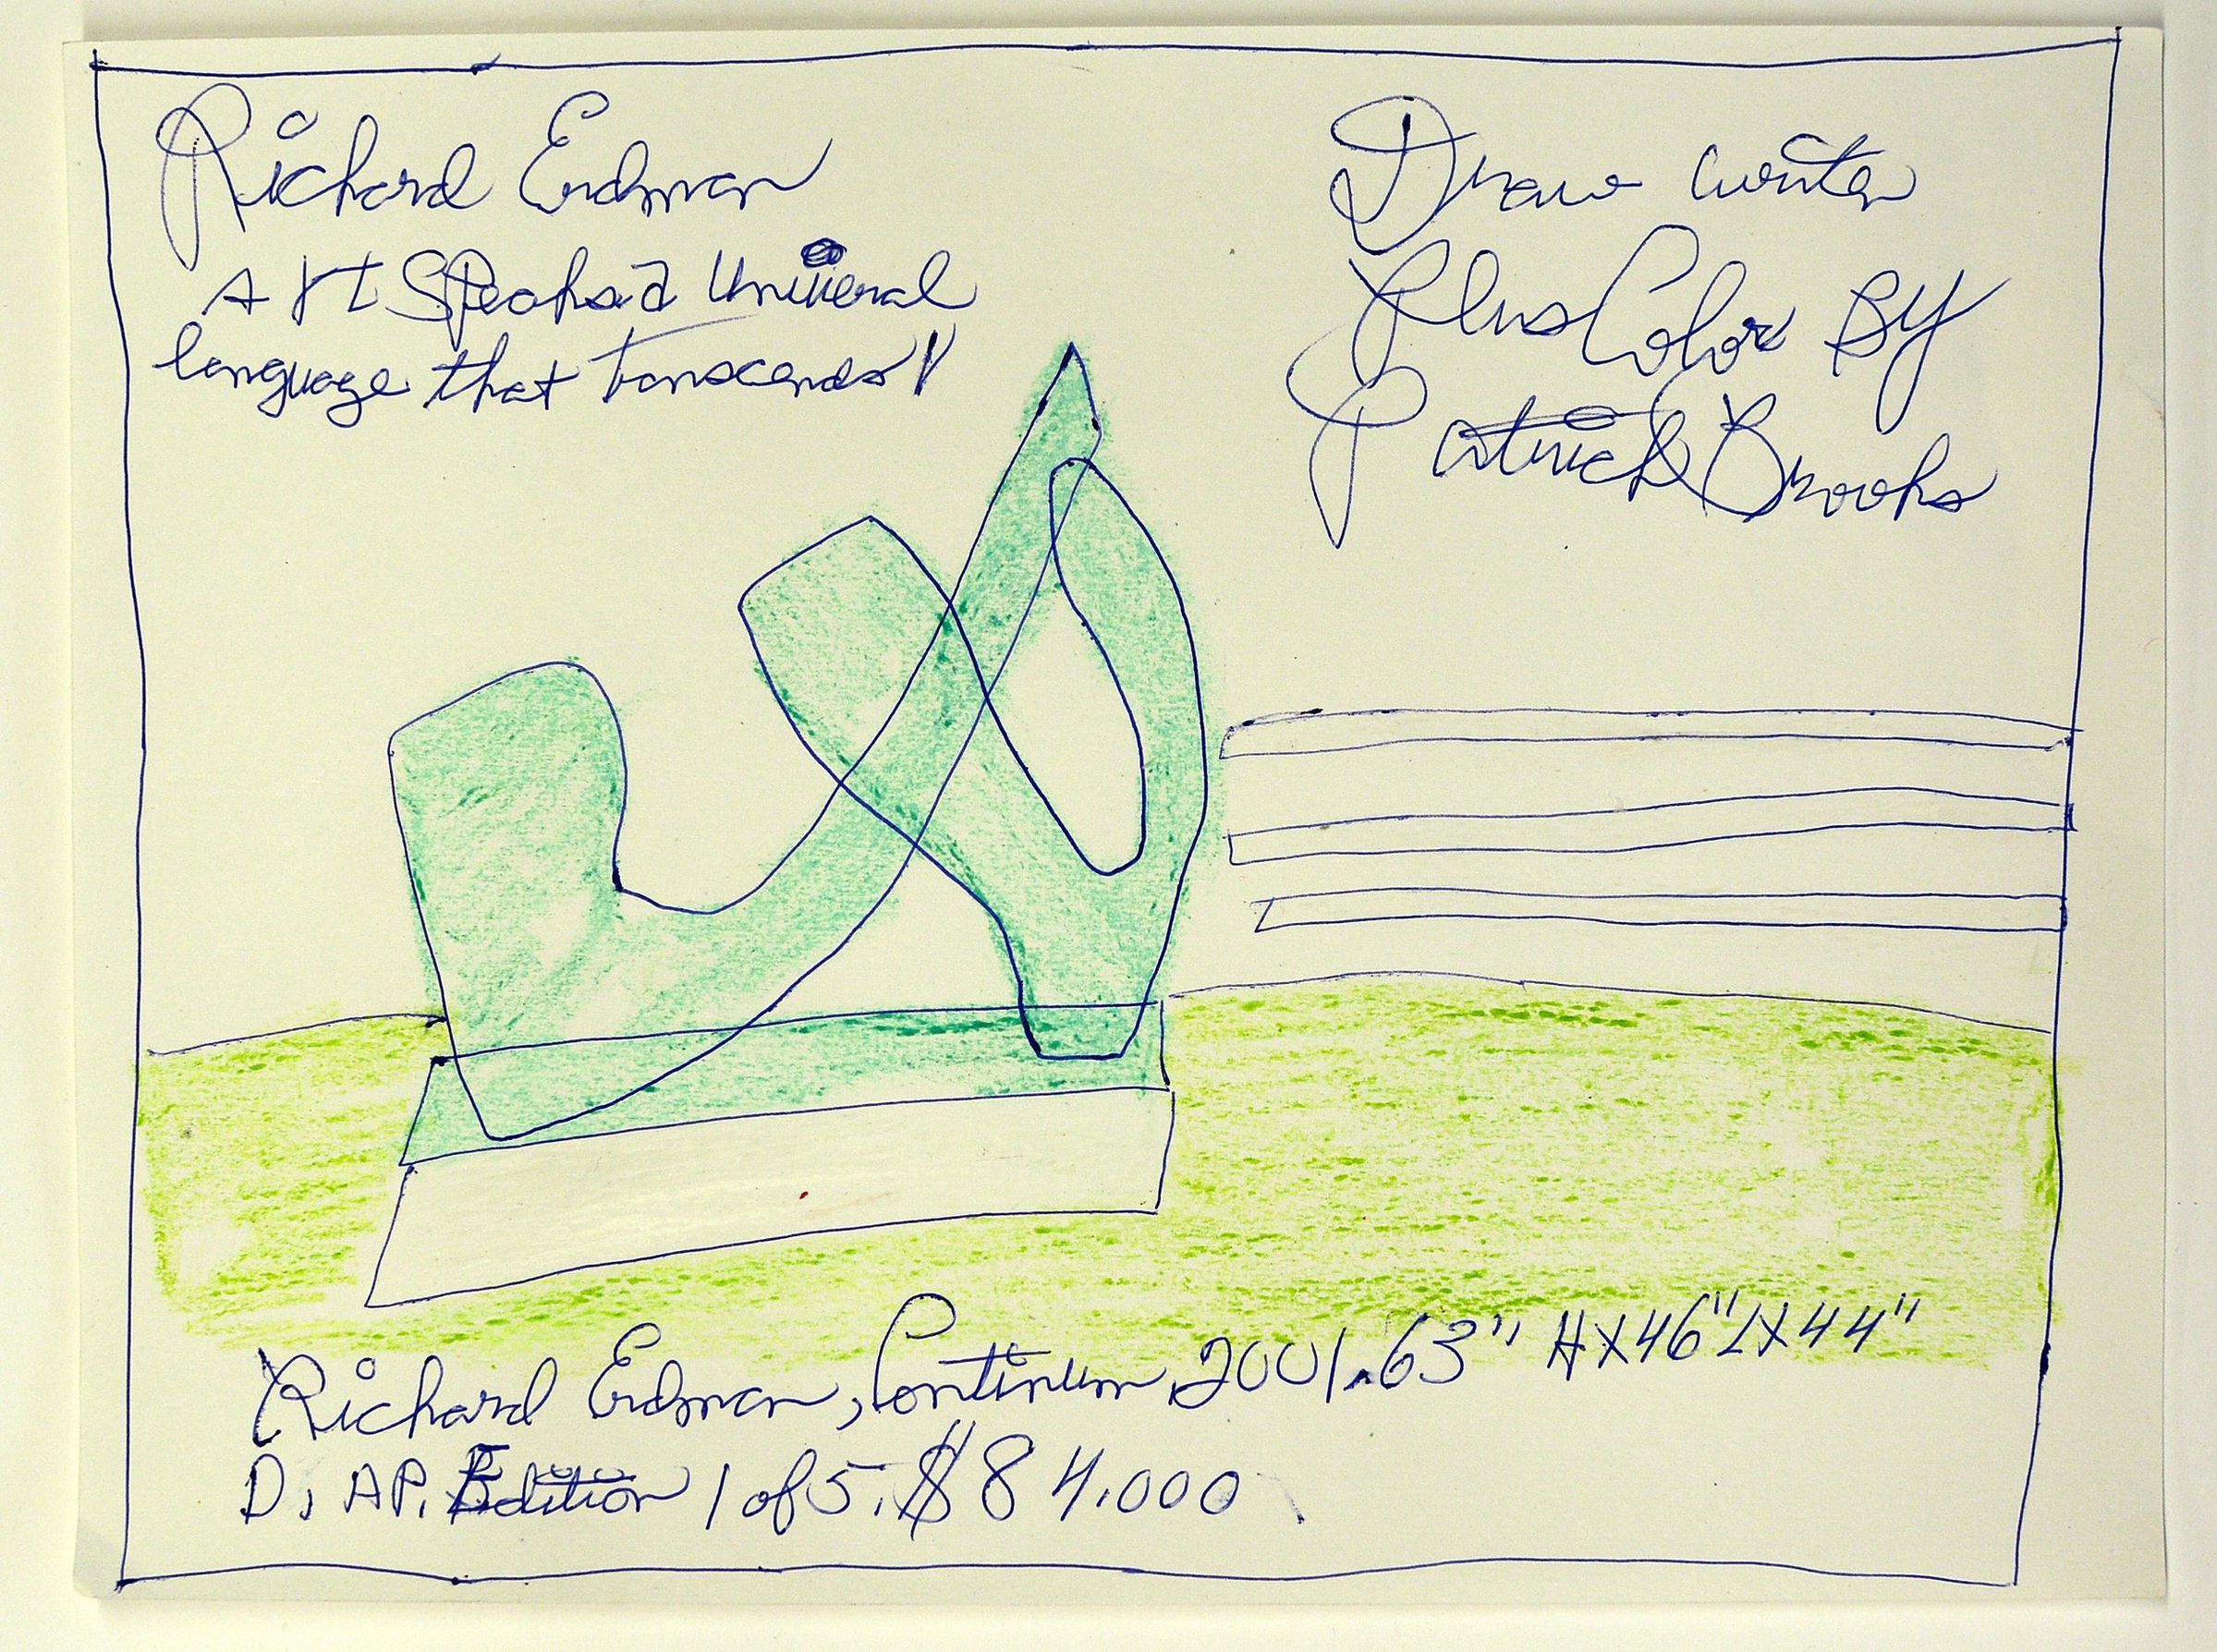 Richard Erdman
Art Speaks a Univeral
language that Transcends"
Draw writen
Plus Color By
Patrick Brooks
Richard Erdman, Continum, 2001. 63" HX46"LX44"
D, AP. Edition 1 of 5. $84,000